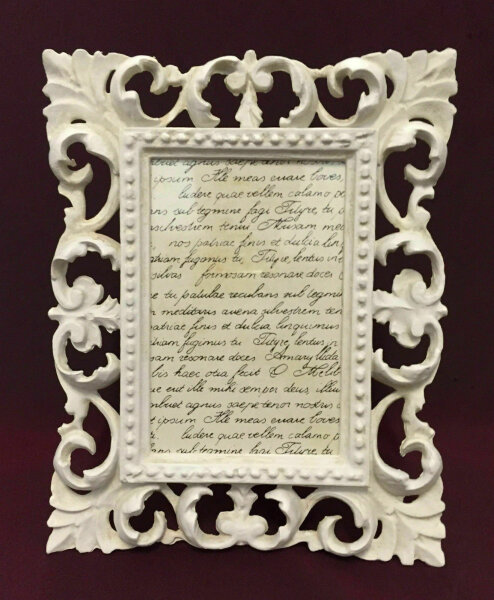 agnus saepe tenor nostris
ipsum Ille meas errare boves,
ludere quae vellem calamo
ans sub tegmine fagi Tityre, tu
silvestrem tenui Musam med
nos patriae finis et dulcia lin
fugimus tu Tityre, lentus
silvas formosam resonare doces
tu patulae recubans sub tegmin
m meditaris avena silvestrem ten
atriae finis et dulcia linquimus
riam fugimus tu Tityre, lentus in
sam resonare doces Amaryllida
bis haec otia fecit O Melib
ue erit ille mihi semper deus, illiu
mbuet agnus saepe tenor nostris
ipsum Ille meas errare boves
ludere quae vellem calamo p
ans sub tegmine fagi Tityre, tu